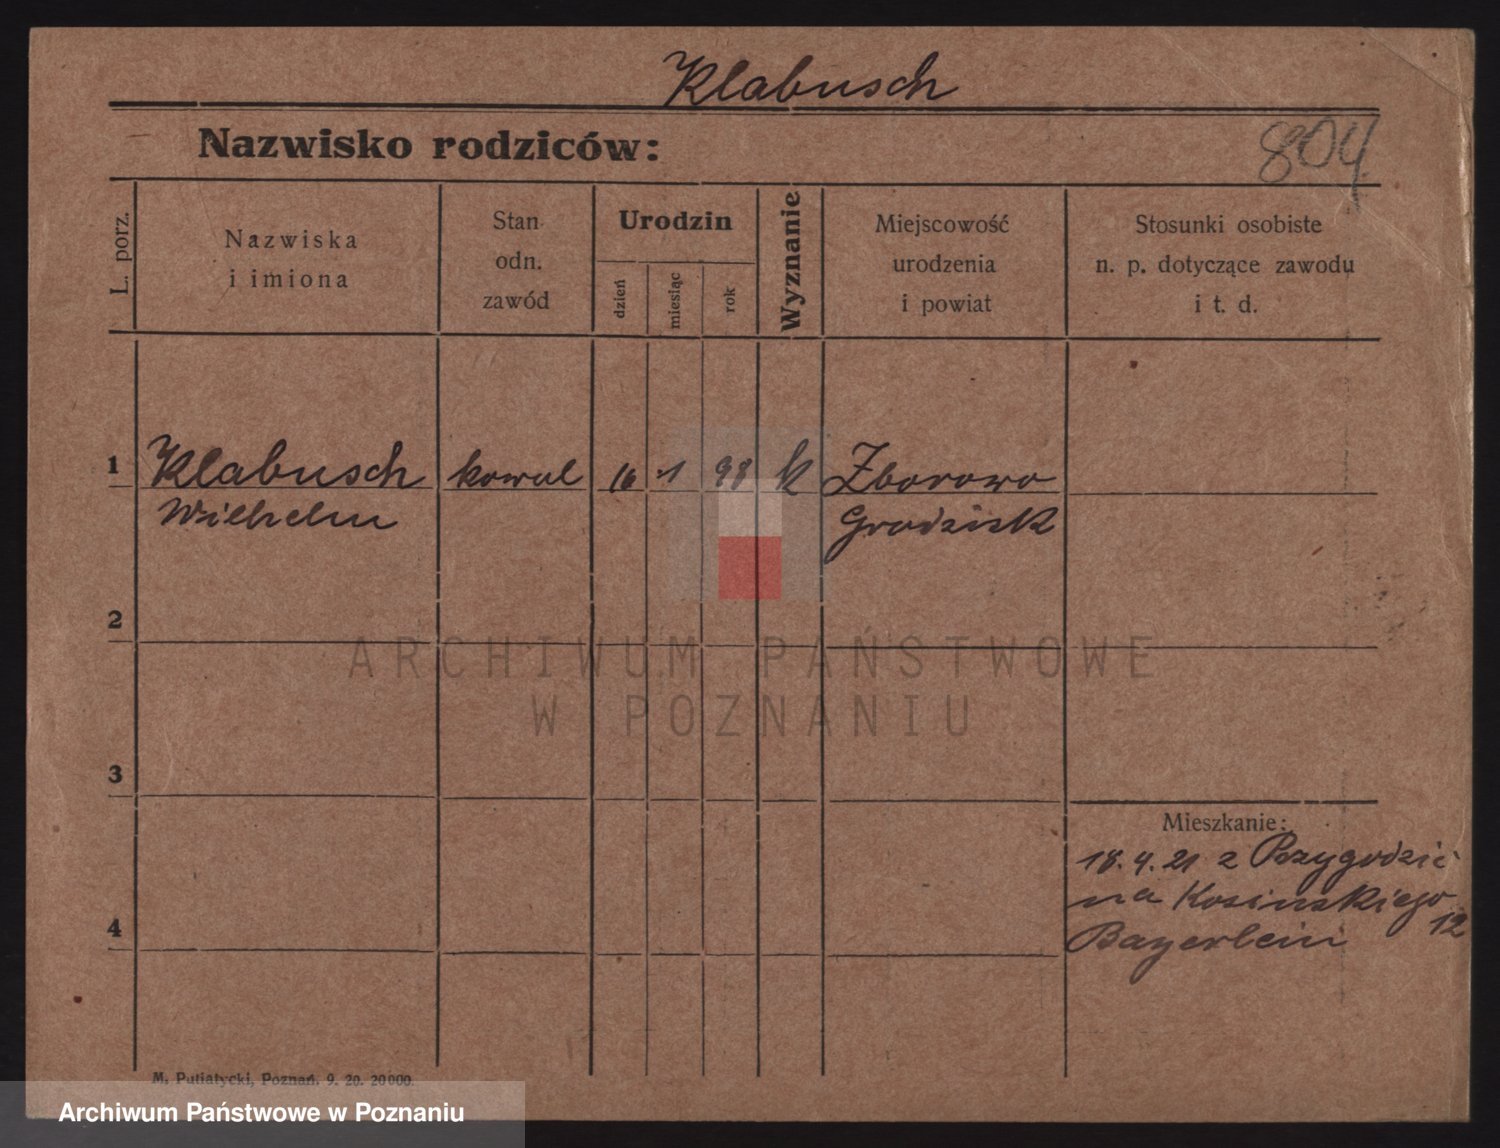 Klabusch
Nazwisko rodziców:
804
L. porz.
Nazwiska
i imiona
Stan
odn.
zawód
Urodzin
dzień
miesiąc
rok
Wyznanie
Miejscowość
urodzenia
i powiat
Stosunki osobiste
n. p. dotyczące zawodu
i t. d.
1 Klabusch kowal 16 1 98 k Zborowo
Wilhelm Grodzisk
2
ARCHIWUM PAŃSTWOWE
W POZNANIU
3
Mieszkanie:
18.4.21 z Przygodzic
na Kosinskiego 12
4 Bayerlein
M. Putiatycki, Poznań. 9. 20. 20000.
Archiwum Państwowe w Poznaniu